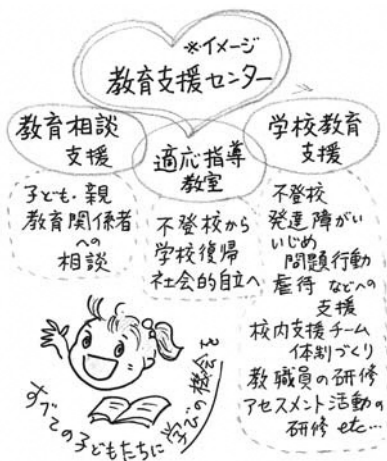 ※イメージ
教育支援センター
教育相談
支援
子ども・親
教育関係者
への
相談
適応指導
教室
不登校から
学校復帰
社会的自立へ
学校教育
支援
不登校
発達障がい
いじめ
問題行動
虐待 などへの
支援
校内支援チーム
体制づくり
教職員の研修
アセスメント活動の
研修 etc…
すべての子どもたちに
学びの機会を